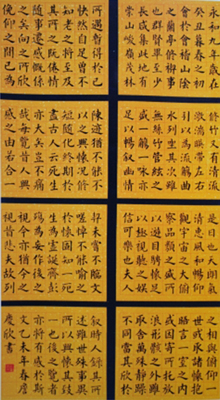 永和九年歲在
癸丑暮春之初
會於會稽山陰
之蘭亭脩禊事
也群賢畢至少
長咸集此地有
崇山峻嶺茂林
脩竹又有清流
激湍暎帶左右
引以為流觴曲
水列坐其次雖
無絲竹管絃之
盛一觴一詠亦
足以暢敘幽情
是日也天朗氣
清惠風和暢仰
觀宇宙之大俯
察品類之盛所
以遊目騁懷足
以極視聽之娛
信可樂也夫人
之相與俯仰一
世或取諸懷抱
晤言一室之內
或因寄所託放
浪形骸之外雖
取舍萬殊靜躁
不同當其欣於
所遇暫得於己
快然自足曾不
知老之將至及
其所之既惓情
隨事遷感慨係
之矣向之所欣
俛仰之間已為
陳迹猶不能不
以之興懷況脩
短隨化終期於
盡古人云死生
亦大矣豈不痛
哉每覽昔人興
感之由若合一
契未嘗不臨文
嗟悼不能喻之
於懷固知一死
生為虛誕齊彭
殤為妄作後之
視今亦猶今之
視昔悲夫故列
敘時人錄其所
述雖世殊事異
所以興懷其致
一也後之覽者
亦將有感於斯
文乙未年春
慶欣書